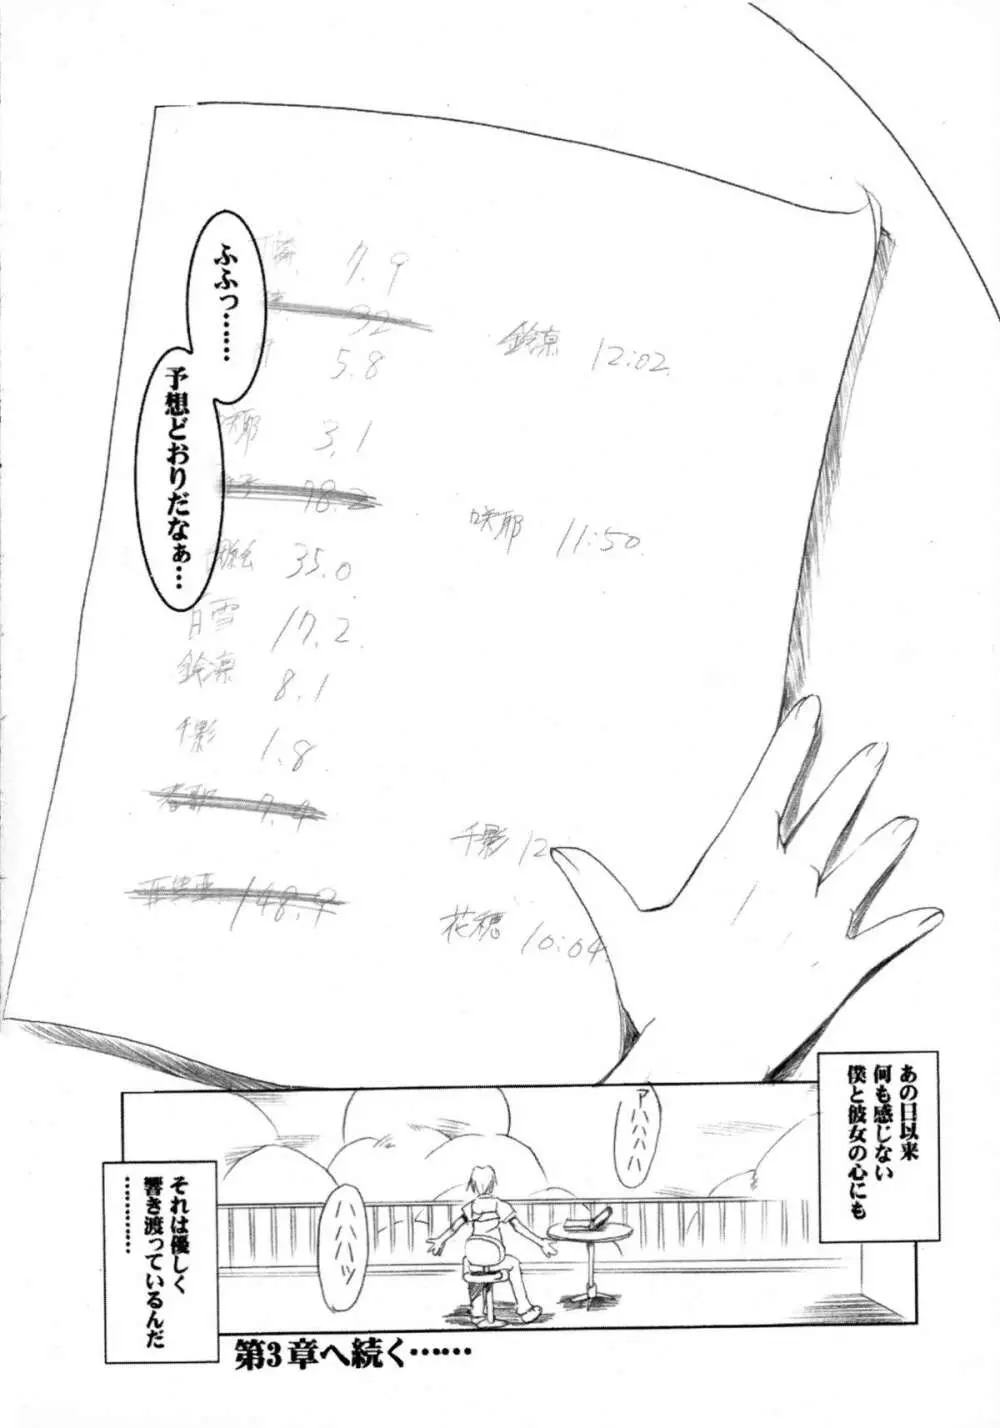 ふふっ……
予想どおりだなぁ…
7.9
92
5.8
咲耶 3.1
78.2
35.0
白雪 17.2
鈴凛 8.1
千影 1.8
春歌 7.4
亞里亞 148.9
鈴凛 12:02
咲耶 11:50
千影 12
花穂 10:04
あの日以来
何も感じない
僕と彼女の心にも
アハハハハ
ハハハッ
それは優しく
響き渡っているんだ
…………
第3章へ続く……